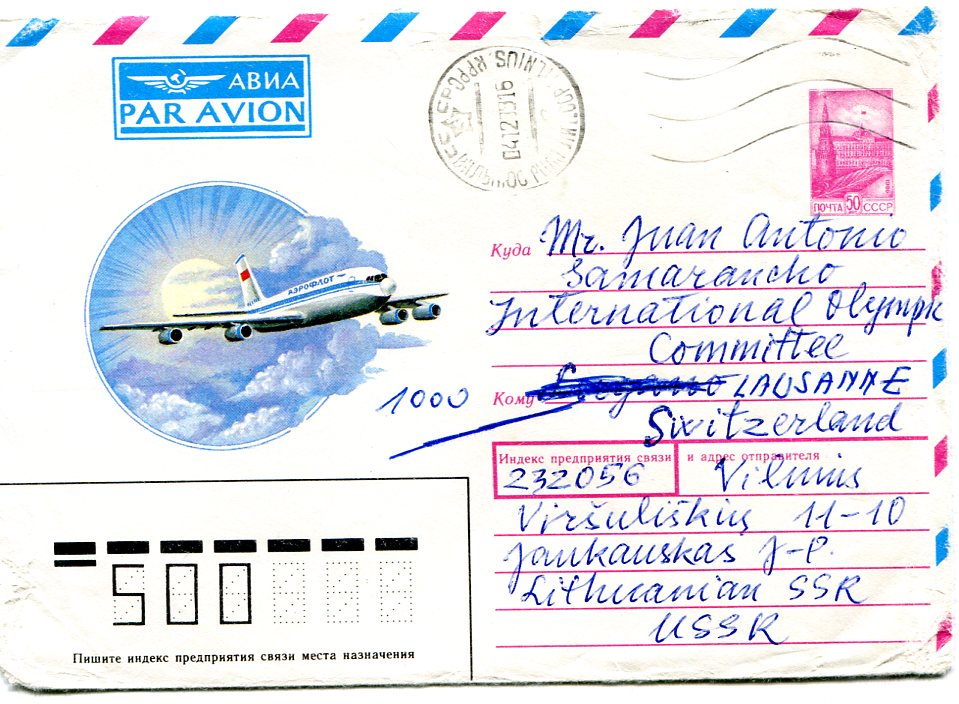 АВИА
PAR AVION
VILNIUS
04 12
ПОЧТА 50 СССР
АЭРОФЛОТ
Куда Mr. Juan Antonio
Samarancho
International Olympic
Committee
Кому LAUSANNE
1000
Switzerland
Индекс предприятия связи и адрес отправителя
232056 Vilnius
Viršuliškių 11-10
Jankauskas J-P.
Lithuanian SSR
USSR
500
Пишите индекс предприятия связи места назначения